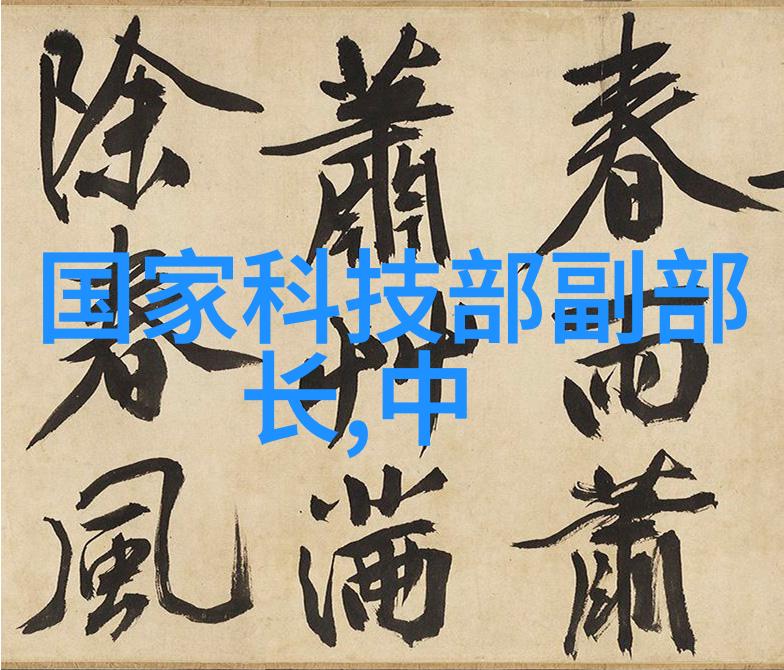 国家科技部副部
长,中
春雨蕭
蕭艸滿
除春風